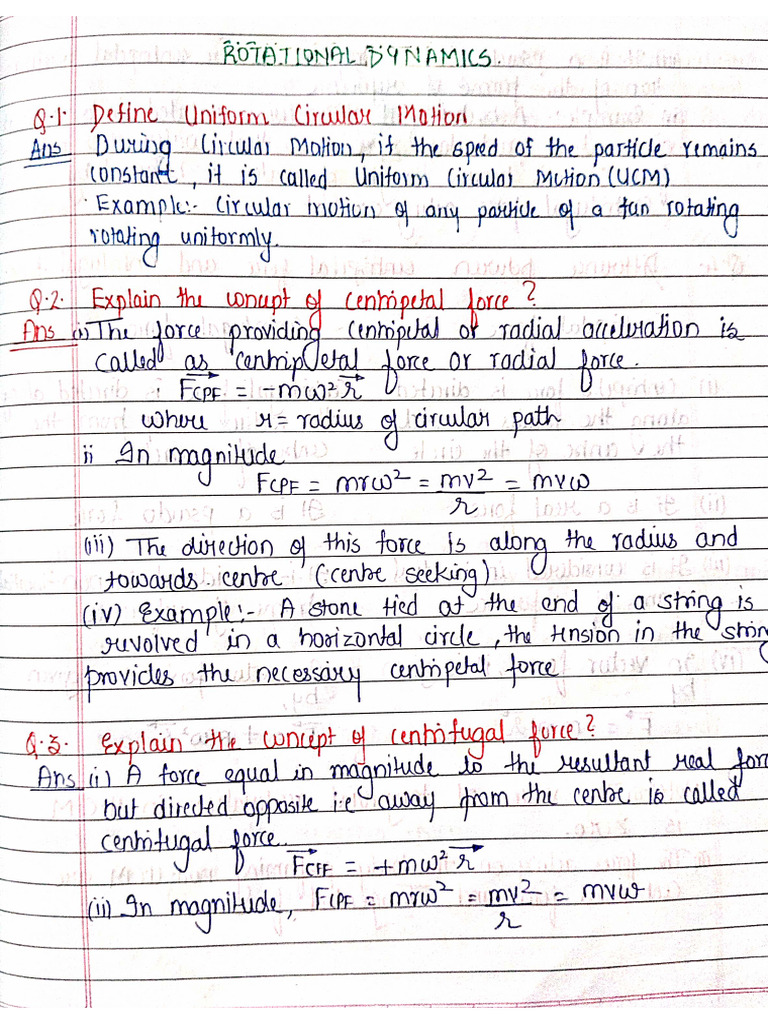 ROTATIONAL DYNAMICS.
Q.1. Define Uniform Circular Motion
Ans During Circular Motion, if the speed of the particle remains
constant, it is called Uniform Circular Motion (UCM)
Example:- Circular motion of any particle of a fan rotating
rotating uniformly.
Q.2. Explain the concept of centripetal force?
Ans (i) The force providing centripetal or radial acceleration is
called as centripetal force or radial force.
F⃗CPF = -mω² r⃗
where r = radius of circular path
ii In magnitude
FCPF = mrω² = mv²/r = mvω
(iii) The direction of this force is along the radius and
towards centre (centre seeking)
(iv) Example:- A stone tied at the end of a string is
revolved in a horizontal circle, the tension in the string
provides the necessary centripetal force
Q.3. Explain the concept of centrifugal force?
Ans (i) A force equal in magnitude to the resultant real forc
but directed opposite i.e away from the centre is called
centrifugal force.
F⃗CFF = +mω² r⃗
(ii) In magnitude, FCPF = mrω² = mv²/r = mvω